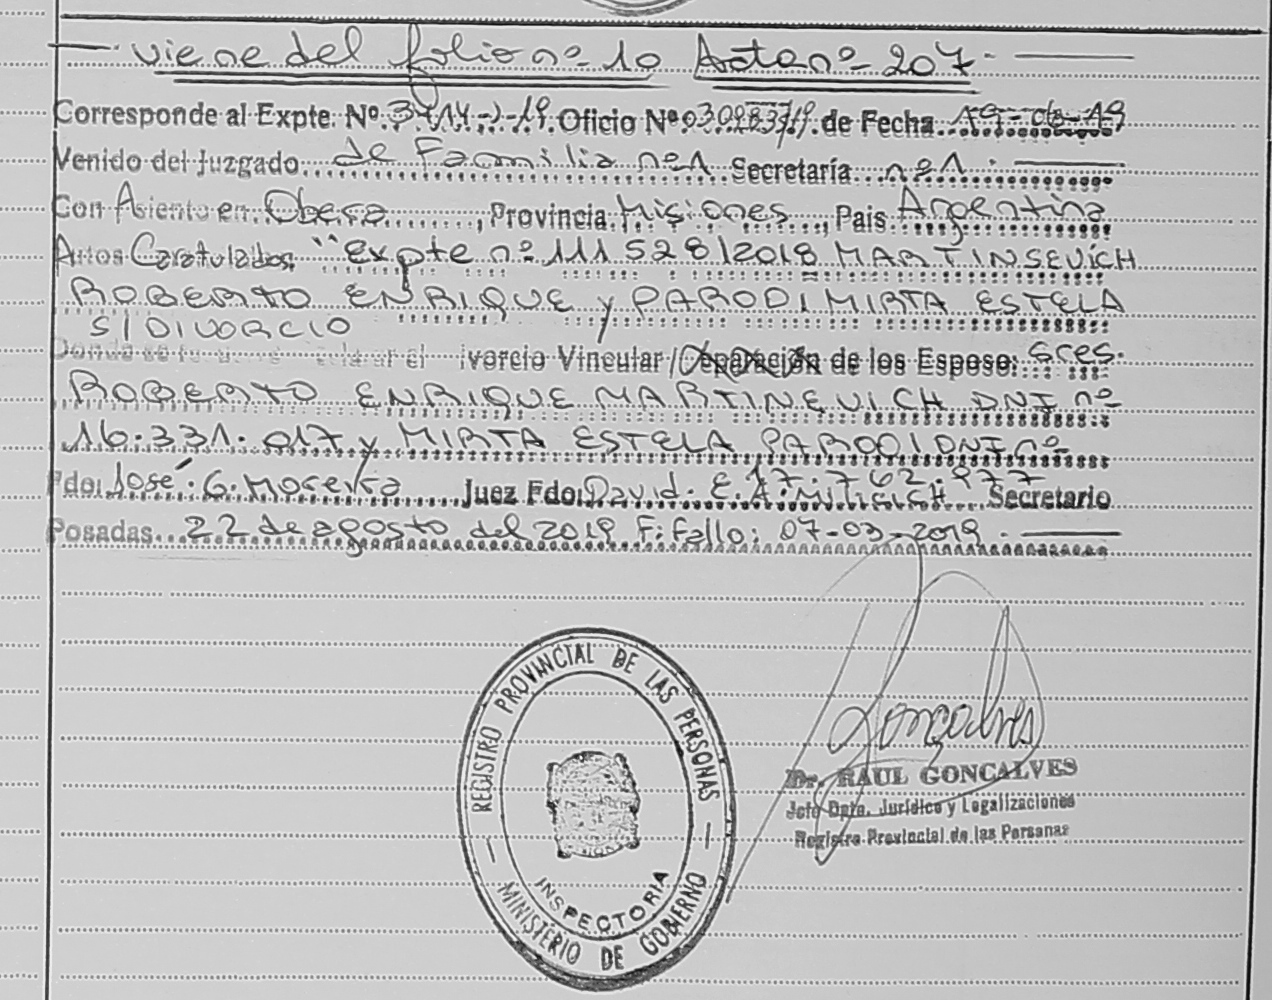 viene del folio nº 10 Acta nº 207.
Corresponde al Expte. Nº 3414-J-19. Oficio Nº de Fecha 19-06-19
Venido del Juzgado de Familia nº1 Secretaría nº1.
Con Asiento en: Obera, Provincia Misiones, Pais Argentina
Autos Caratulados, "Expte nº 111528/2018 MARTINSEVICH
ROBERTO ENRIQUE y PARODI MIRTA ESTELA
S/DIVORCIO
Donde se el ivorcio Vincular/Separación de los Esposo: Sres.
ROBERTO ENRIQUE MARTINEVICH DNI nº
16.331.017 y MIRTA ESTELA PARODI DNI nº
17.762.977
Fdo: José. G. Moreira Juez Fdo: David. E. A. Secretario
Posadas. 22 de agosto del 2019 F: Fallo: 07-03-2019.
REGISTRO PROVINCIAL DE LAS PERSONAS
INSPECTORIA
MINISTERIO DE GOBIERNO
Gonçalves
Dr. RAUL GONCALVES
Jefe Dpto. Jurídico y Legalizaciones
Registro Provincial de las Personas